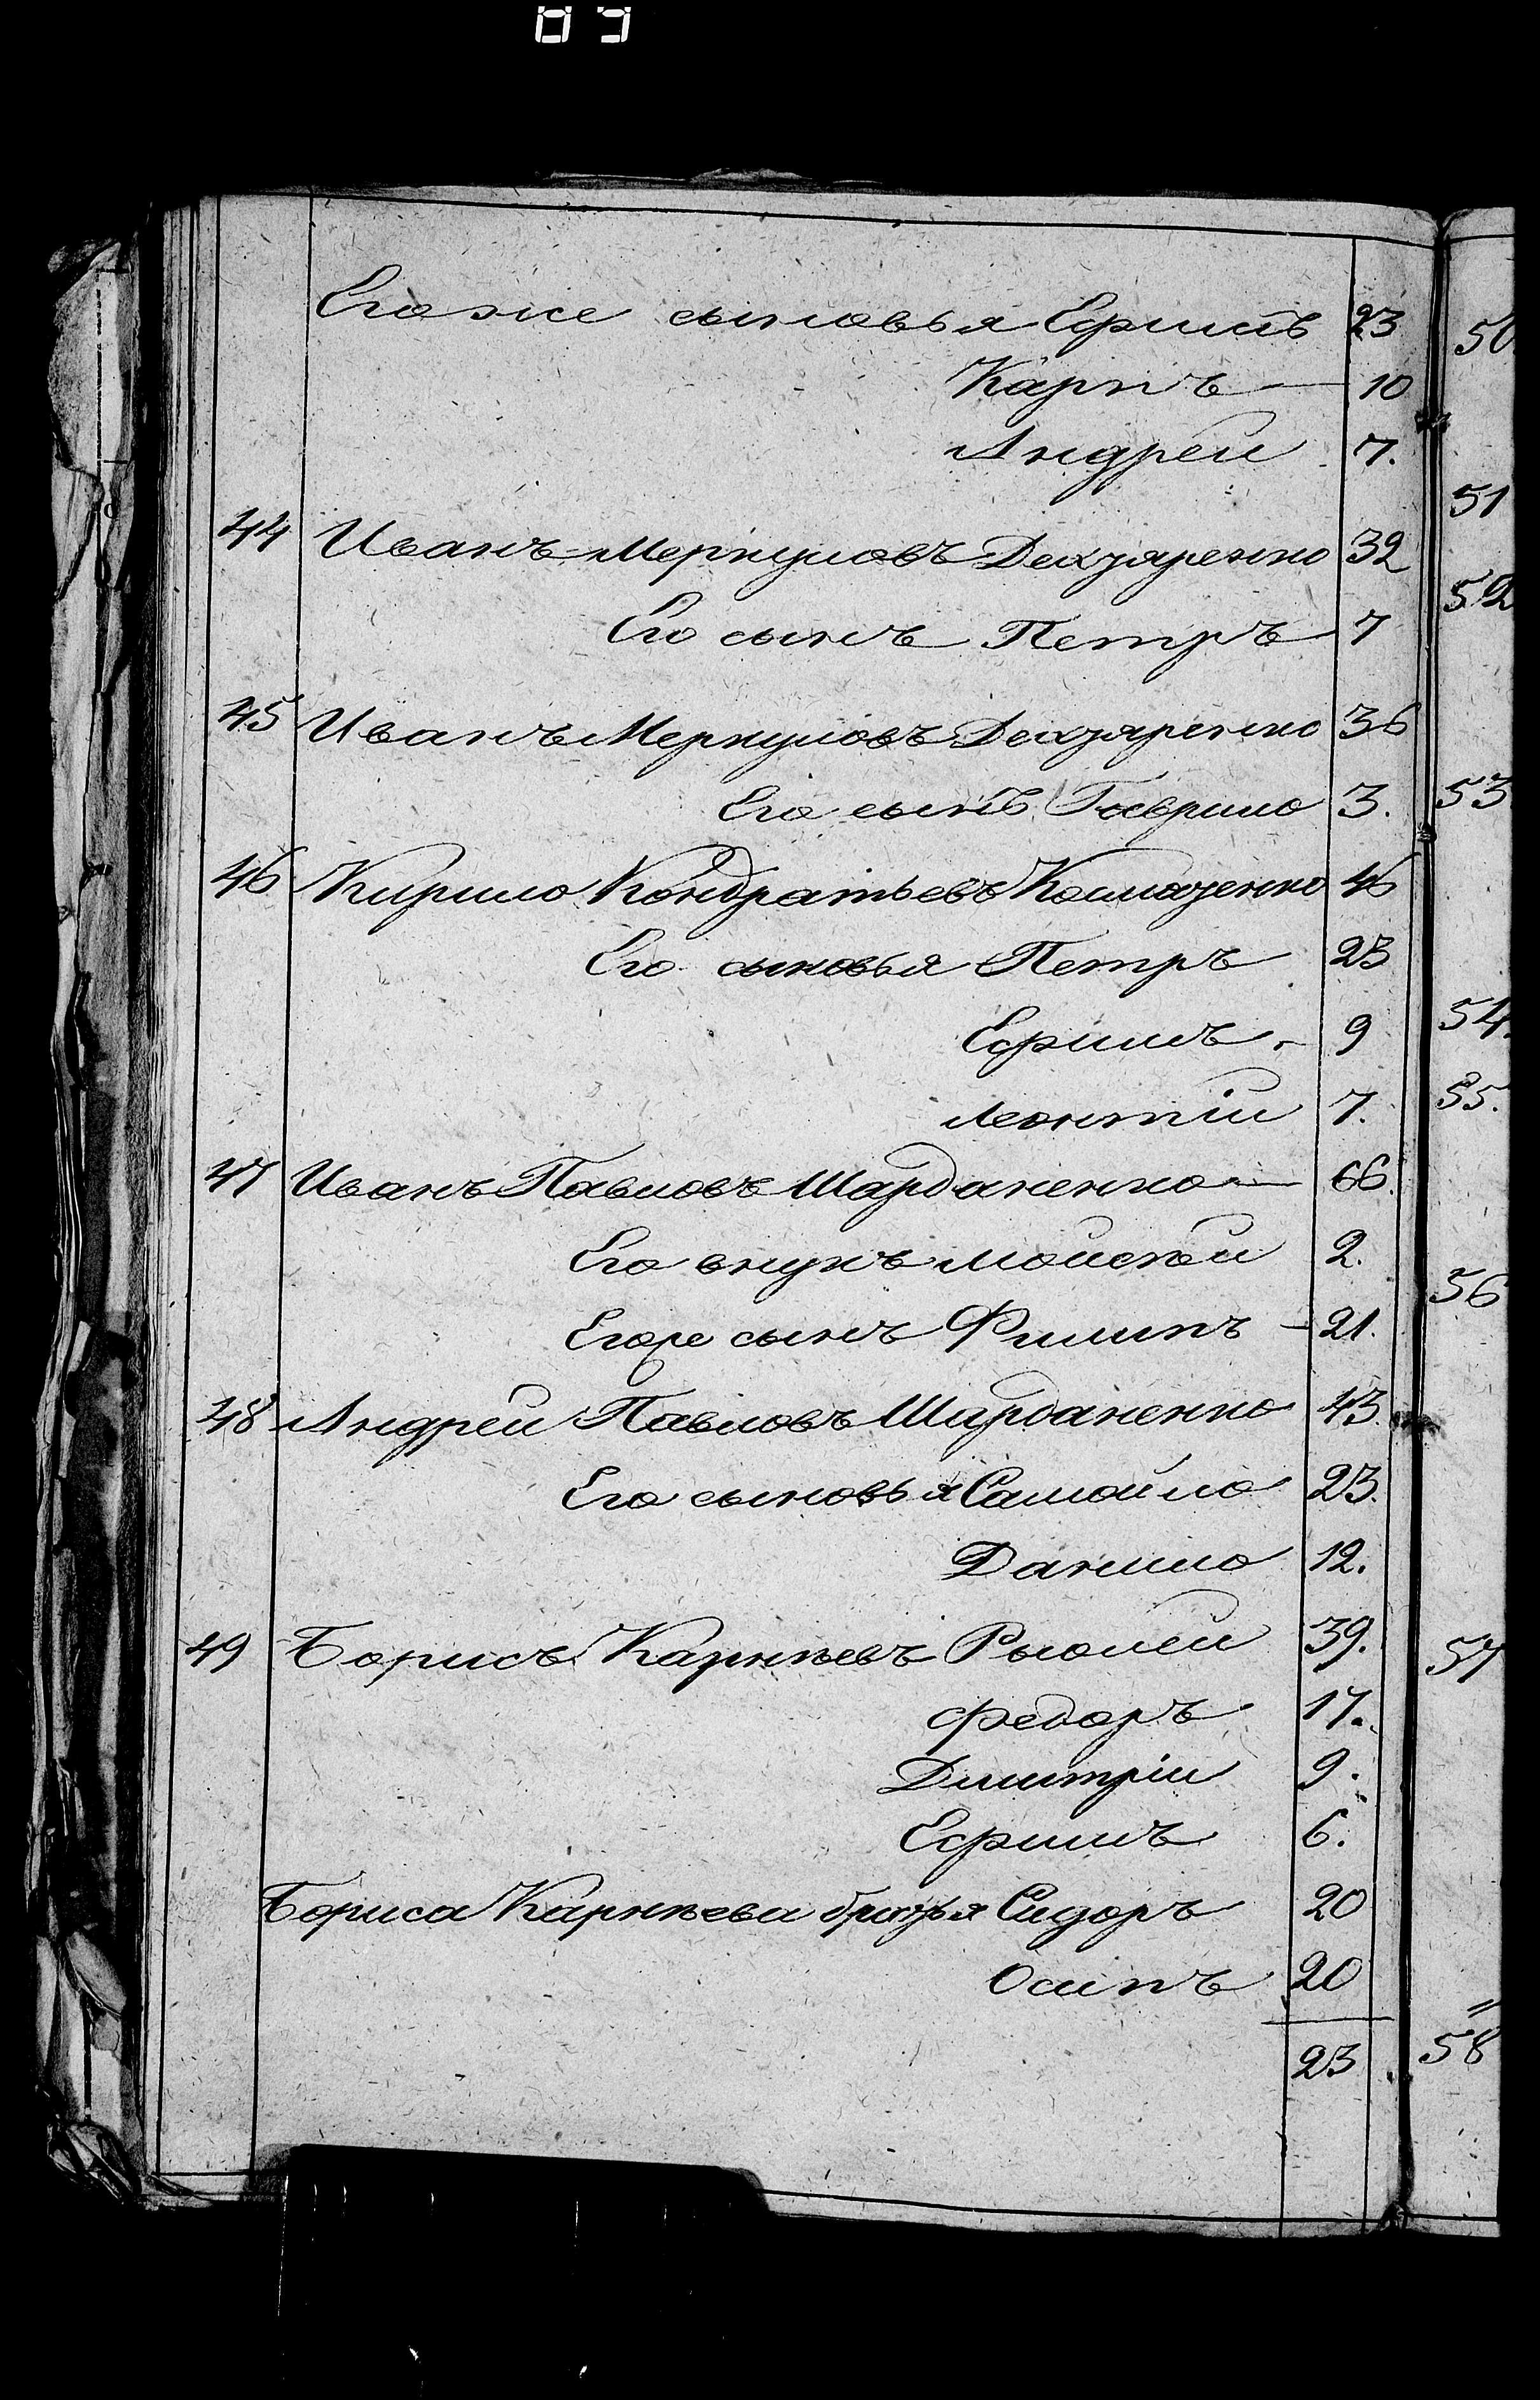 Его же сыновья Ефимъ 23
Карпъ — 10
Андрей 7.
44 Иванъ Меркуловъ Дехтяренко 32
Его сынъ Петръ 7
45 Иванъ Меркуловъ Дехтяренко 36
Его сынъ Гаврило 3.
46 Кирило Кондратьевъ 46
Его сыновья Петръ 23
Ефимъ 9
Леонтій 7.
47 Иванъ Павловъ Шарданенко — 66.
Его внукъ Мойсѣй 2.
Его же сынъ Филипъ - 21.
48 Андрей Павловъ Шарданенко 43.
Его сыновья Самойло 23.
Данило 12.
49 Борисъ Карнѣевъ 39.
Федоръ 17.
Дмитрій 9.
Ефимъ 6.
Бориса Карнѣева братья Сидоръ 20
Осипъ 20
23
50.
51
52
53
54.
55.
56
57
58